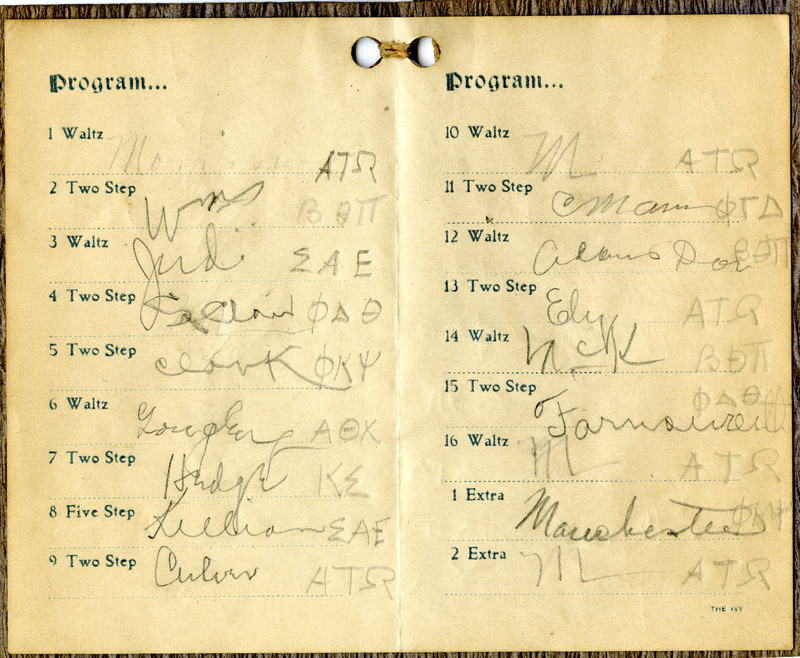 Program...
1 Waltz
ΑΤΩ
2 Two Step
Wms ΒΘΠ
3 Waltz
Judi ΣΑΕ
4 Two Step
ΦΔΘ
5 Two Step
Clark ΦΚΨ
6 Waltz
ΑΘΧ
7 Two Step
Hedge ΚΣ
8 Five Step
Killian ΣΑΕ
9 Two Step
Culver ΑΤΩ
Program...
10 Waltz
M ΑΤΩ
11 Two Step
CMann ΦΓΔ
12 Waltz
Adams Don ΒΘΠ
13 Two Step
Ely ΑΤΩ
14 Waltz
McK ΒΘΠ
15 Two Step
ΦΔΘ
16 Waltz
M ΑΤΩ
1 Extra
Manchester ΦΚΨ
2 Extra
M ΑΤΩ
THE IVY